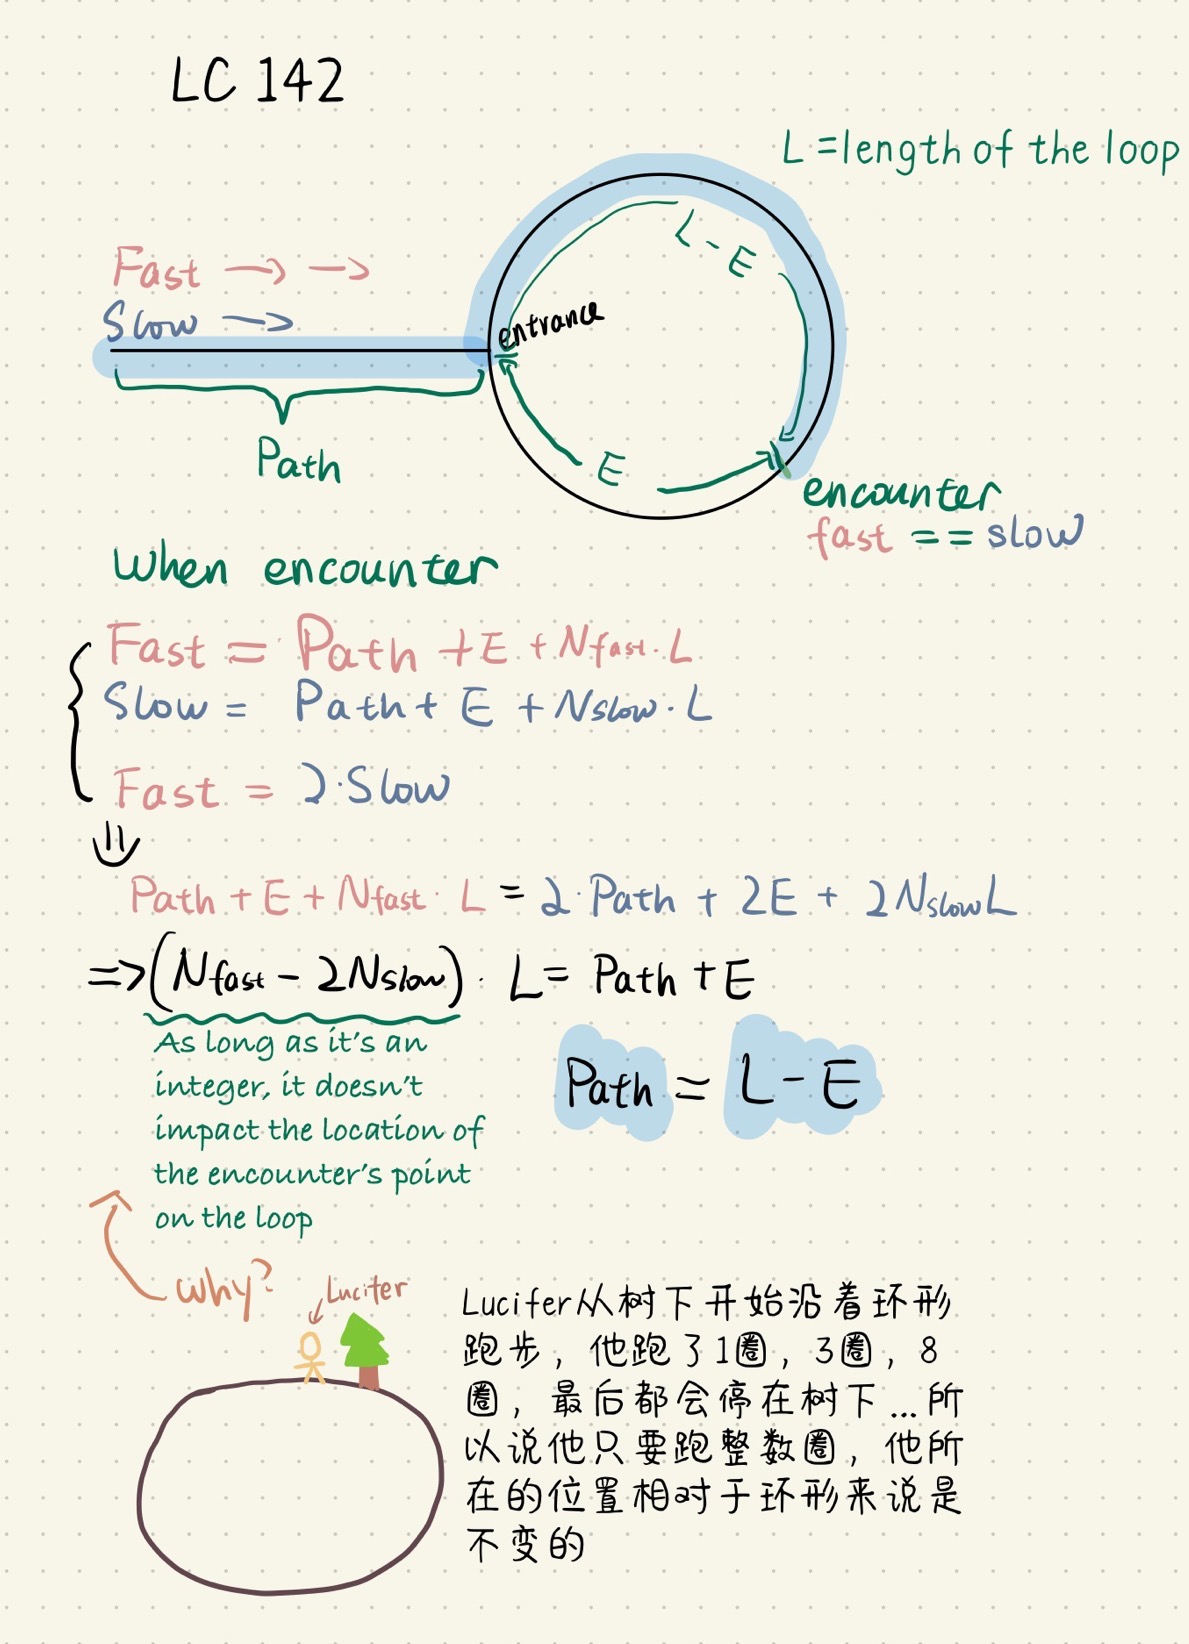 LC 142
L = length of the loop
Fast → →
Slow →
L - E
entrance
Path
E
encounter
fast == slow
When encounter
Fast = Path + E + Nfast · L
Slow = Path + E + Nslow · L
Fast = 2 · Slow
Path + E + Nfast · L = 2 · Path + 2E + 2NslowL
=> (Nfast - 2Nslow) · L = Path + E
As long as it's an
integer, it doesn't
impact the location of
the encounter's point
on the loop
Path = L - E
why?
Lucifer
Lucifer从树下开始沿着环形
跑步，他跑了1圈，3圈，8
圈，最后都会停在树下...所
以说他只要跑整数圈，他所
在的位置相对于环形来说是
不变的